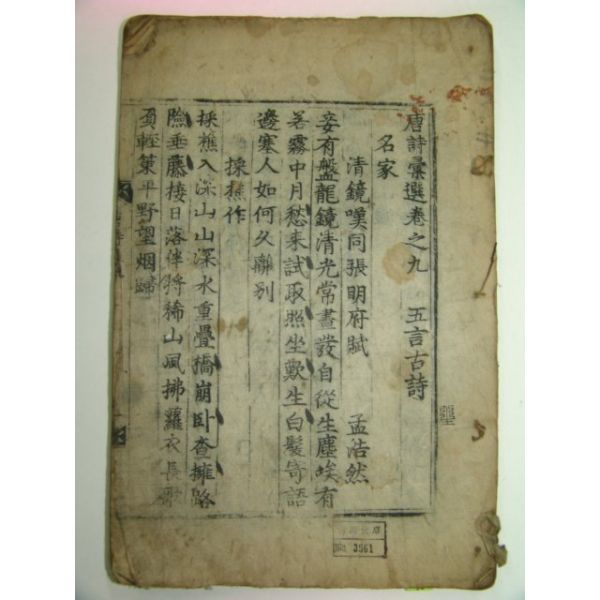 唐詩彙選卷之九 五言古詩
名家
清鏡嘆同張明府賦 孟浩然
妾有盤龍鏡清光常晝發自從生塵埃有
若霧中月愁來試取照坐歎生白髮寄語
邊塞人如何久離别
採樵作
採樵入深山山深水重疊橋崩卧查擁路
險垂藤接日落伴將稀山風拂蘿衣長歌
負輕策平野望烟歸
No. 3561